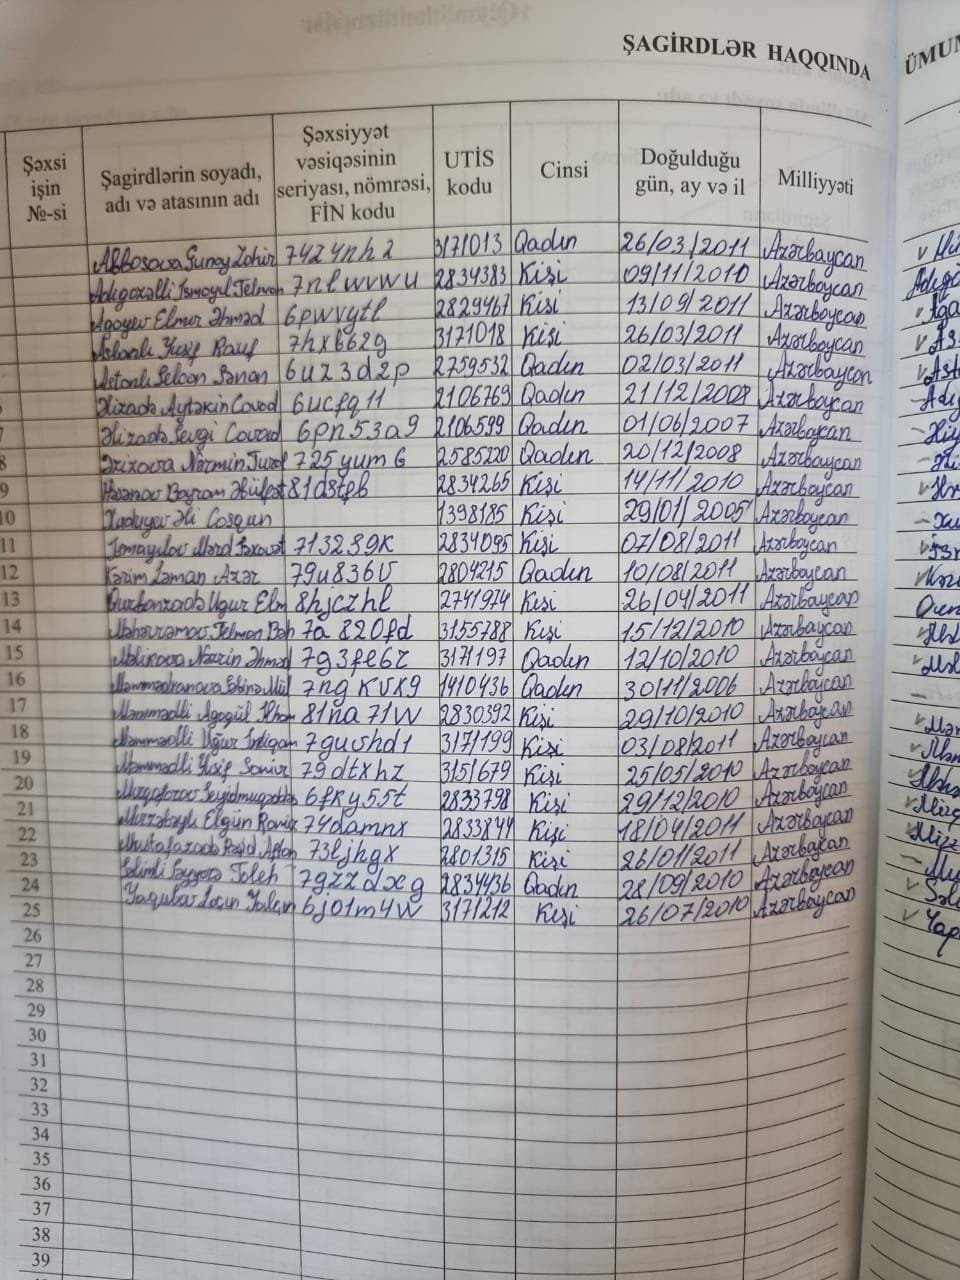 ŞAGİRDLƏR HAQQINDA
Şəxsi işin №-si
Şagirdlərin soyadı, adı və atasının adı
Şəxsiyyət vəsiqəsinin seriyası, nömrəsi, FİN kodu
UTİS kodu
Cinsi
Doğulduğu gün, ay və il
Milliyyəti
Abbasova Sunay Zahir 3171013 Qadın 26/03/2011 Azərbaycan
Adıgözəlli İsmayıl Telman 7nlwvwu 2834383 Kişi 09/11/2010 Azərbaycan
Agayev Elmar Əhməd 6pwvytl 2829467 Kişi 13/09/2011 Azərbaycan
Aslanlı Yusif Rauf 3171018 Kişi 26/03/2011 Azərbaycan
Sənan 6uz3d2p 2759532 Qadın 02/03/2011 Azərbaycan
Əlizadə Aytəkin Cavad 6ucfq11 2106769 Qadın 21/12/2008 Azərbaycan
Əlizadə Sevgi Cavad 6pn53a9 2106599 Qadın 01/06/2007 Azərbaycan
8 Əzizova Nərmin 725yum6 2585220 Qadın 20/12/2008 Azərbaycan
9 Həsənov Bayram 2834265 Kişi 14/11/2010 Azərbaycan
10 Əli Coşqun 1398185 Kişi 29/01/2005 Azərbaycan
11 İsmayılov 713289k 2834095 Kişi 07/08/2011 Azərbaycan
12 Kərim Zaman Azər 79u836v 2804215 Qadın 10/08/2011 Azərbaycan
13 Qurbanzadə Uğur Elm 8hjczhl 2741974 Kişi 26/04/2011 Azərbaycan
14 Məhərrəmov Telman Bəh 7a820fd 3155788 Kişi 15/12/2010 Azərbaycan
15 Məlikova Nəzrin Əhməd 7g3fe6z 3171197 Qadın 12/10/2010 Azərbaycan
16 Məmmədxanova Səbinə 7ngkvx9 1410436 Qadın 30/11/2006 Azərbaycan
17 Məmmədli Ağagül İlham 81na71w 2830392 Kişi 29/10/2010 Azərbaycan
18 Məmmədli Uğur İntiqam 7gushd1 3171199 Kişi 03/08/2011 Azərbaycan
19 Məmmədli Yusif 79dtxhz 3151679 Kişi 25/05/2010 Azərbaycan
20 6fky55t 2833798 Kişi 29/12/2010 Azərbaycan
21 Elgün Ramiz 74damnx 2833844 Kişi 18/04/2011 Azərbaycan
22 Mustafazadə 73ljhgx 2801315 Kişi 26/01/2011 Azərbaycan
23 Səlimli Səyyarə Taleh 7gzzdxg 2834436 Qadın 28/09/2010 Azərbaycan
24 Yaqubov 6j01m4w 3171212 Kişi 26/07/2010 Azərbaycan
25
26
27
28
29
30
31
32
33
34
35
36
37
38
39